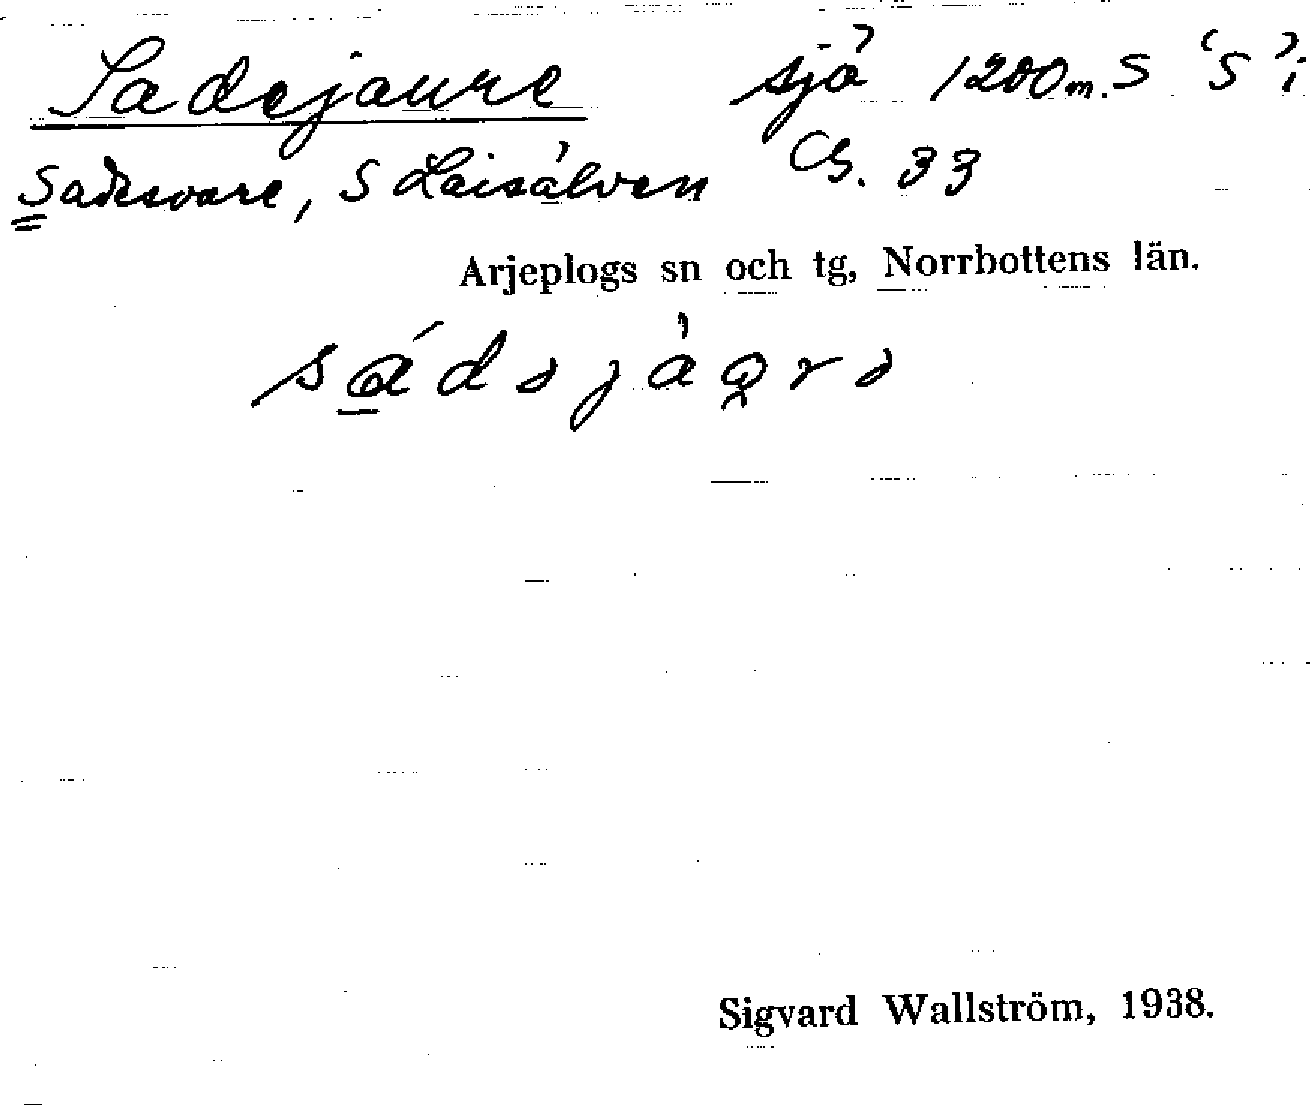 Sadejaure sjö 1200 m. S 'S' i
Sadesvare, S Laisälven Cb. 33
Arjeplogs sn och tg, Norrbottens län.
Sigvard Wallström, 1938.